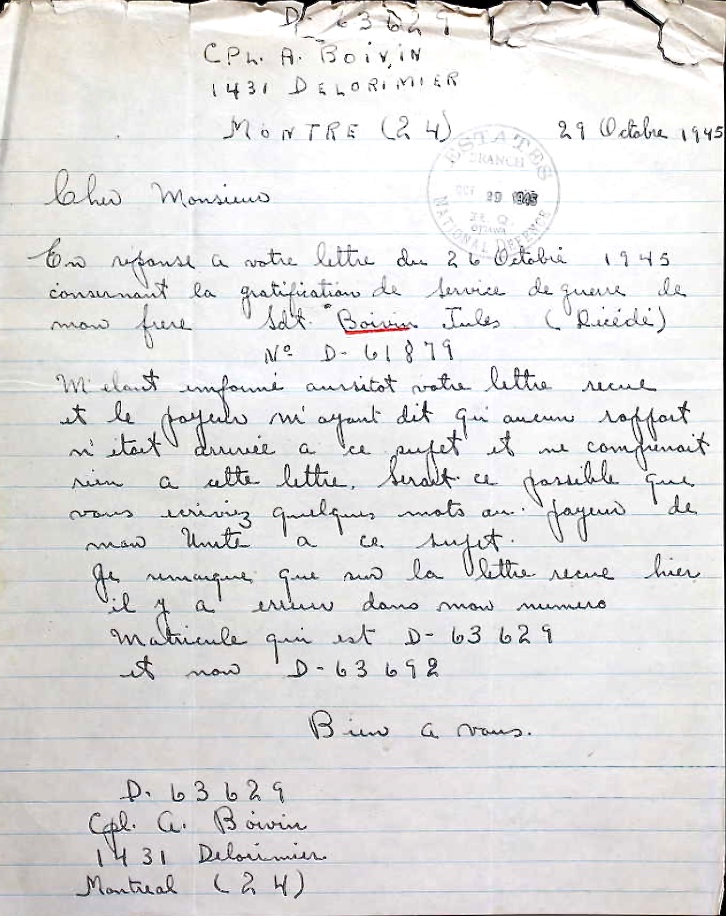 D-63629
CPL. A. BOIVIN
1431 DELORIMIER
MONTRE (24)
29 Octobre 1945
ESTATES
BRANCH
OCT 29 1945
H. Q.
OTTAWA
NATIONAL DEFENCE
Cher Monsieur
En réponse a votre lettre du 26 Octobre 1945
consernant la gratification de Service de guerre de
mon frere Sdt. Boivin Jules (Décédé)
No D-61879
M'etant informé aussitot votre lettre recue
et le payeur m'ayant dit qu'aucun rapport
n'etait arrivée a ce sujet et ne comprenait
rien a cette lettre. Serait-ce possible que
vous ecriviez quelques mots au payeur de
mon Unité a ce sujet.
Je remarque que sur la lettre recue hier
il y a erreur dans mon numero
Matricule qui est D-63629
et non D-63692
Bien a vous.
D. 63629
Cpl. A. Boivin
1431 Delorimier
Montreal (24)